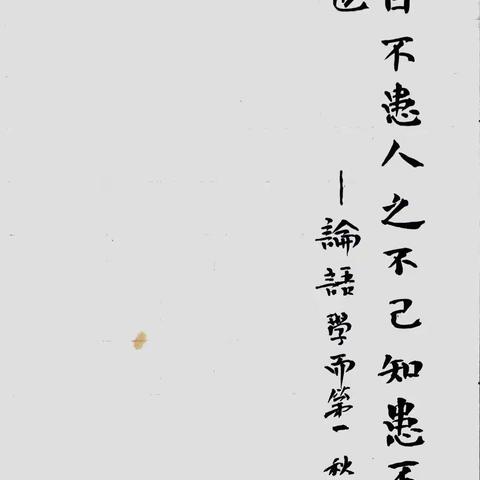 曰不患人之不己知患不
也
—論語學而第一 秋